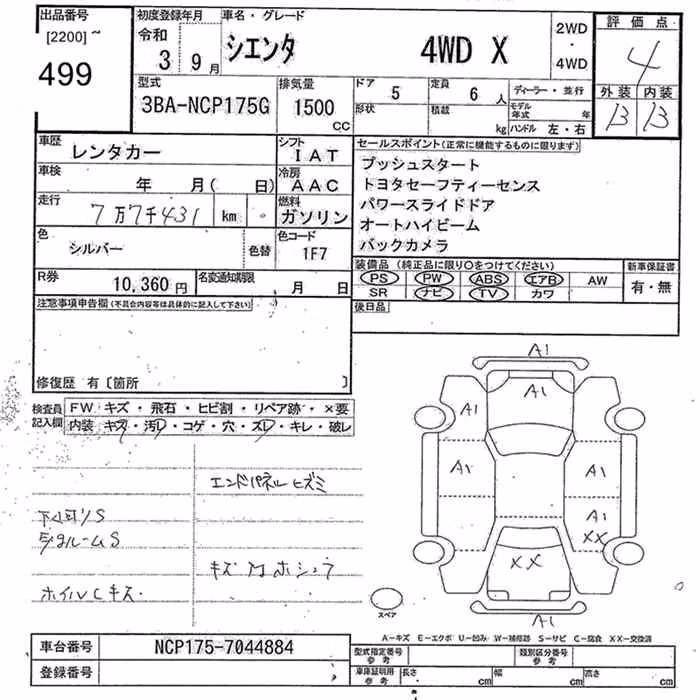 出品番号
[2200]~
499
初度登録年月
令和
3 9月
車名・グレード
シエンタ 4WD X
2WD
・
4WD
評価点
4
外装 内装
B B
型式
3BA-NCP175G
排気量
1500
CC
ドア 5
形状
定員 6人
積載 kg
ディーラー・並行
モデル年式 年
ハンドル 左・右
車歴
レンタカー
シフト
IAT
車検
年 月( 日)
冷房
AAC
走行
7万7千431 km
燃料
ガソリン
色
シルバー
色替
色コード
1F7
R券
10,360円
名変通知期限
月 日
セールスポイント(正常に機能するものに限ります)
プッシュスタート
トヨタセーフティーセンス
パワースライドドア
オートハイビーム
バックカメラ
装備品(純正品に限り○をつけてください)
PS PW ABS エアB AW
SR ナビ TV カワ
新車保証書
有・無
後日品
注意事項申告欄(不具合内容等は具体的に記入して下さい)
修復歴 有〔箇所 〕
検査員
記入欄
FW キズ・飛石・ヒビ割・リペア跡・×要
内装 キズ・汚レ・コゲ・穴・スレ・キレ・破レ
エンドパネルヒズミ
S
ルームS
キズ
ホイルCキズ
A1
A1
A1
A1
A1
A1
XX
XX
A1
スペア
A-キズ E-エクボ U-凹み W-補修跡 S-サビ C-腐食 XX-交換済
車台番号
NCP175-7044884
登録番号
型式指定番号
参考
類別区分番号
参考
車庫証明用
参考
長さ cm
幅 cm
高さ cm